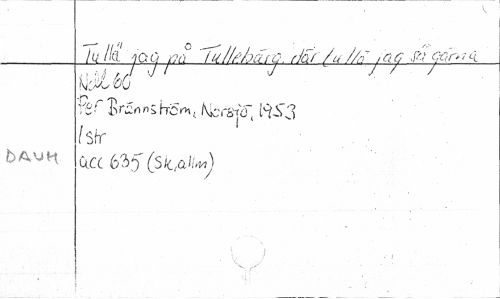 Tullä jag på Tulleberg, där tullä jag så gärna
Ndl 60
Per Brännström, Norsjö, 1953
1 str
DAUM
acc 635 (sk, allm)